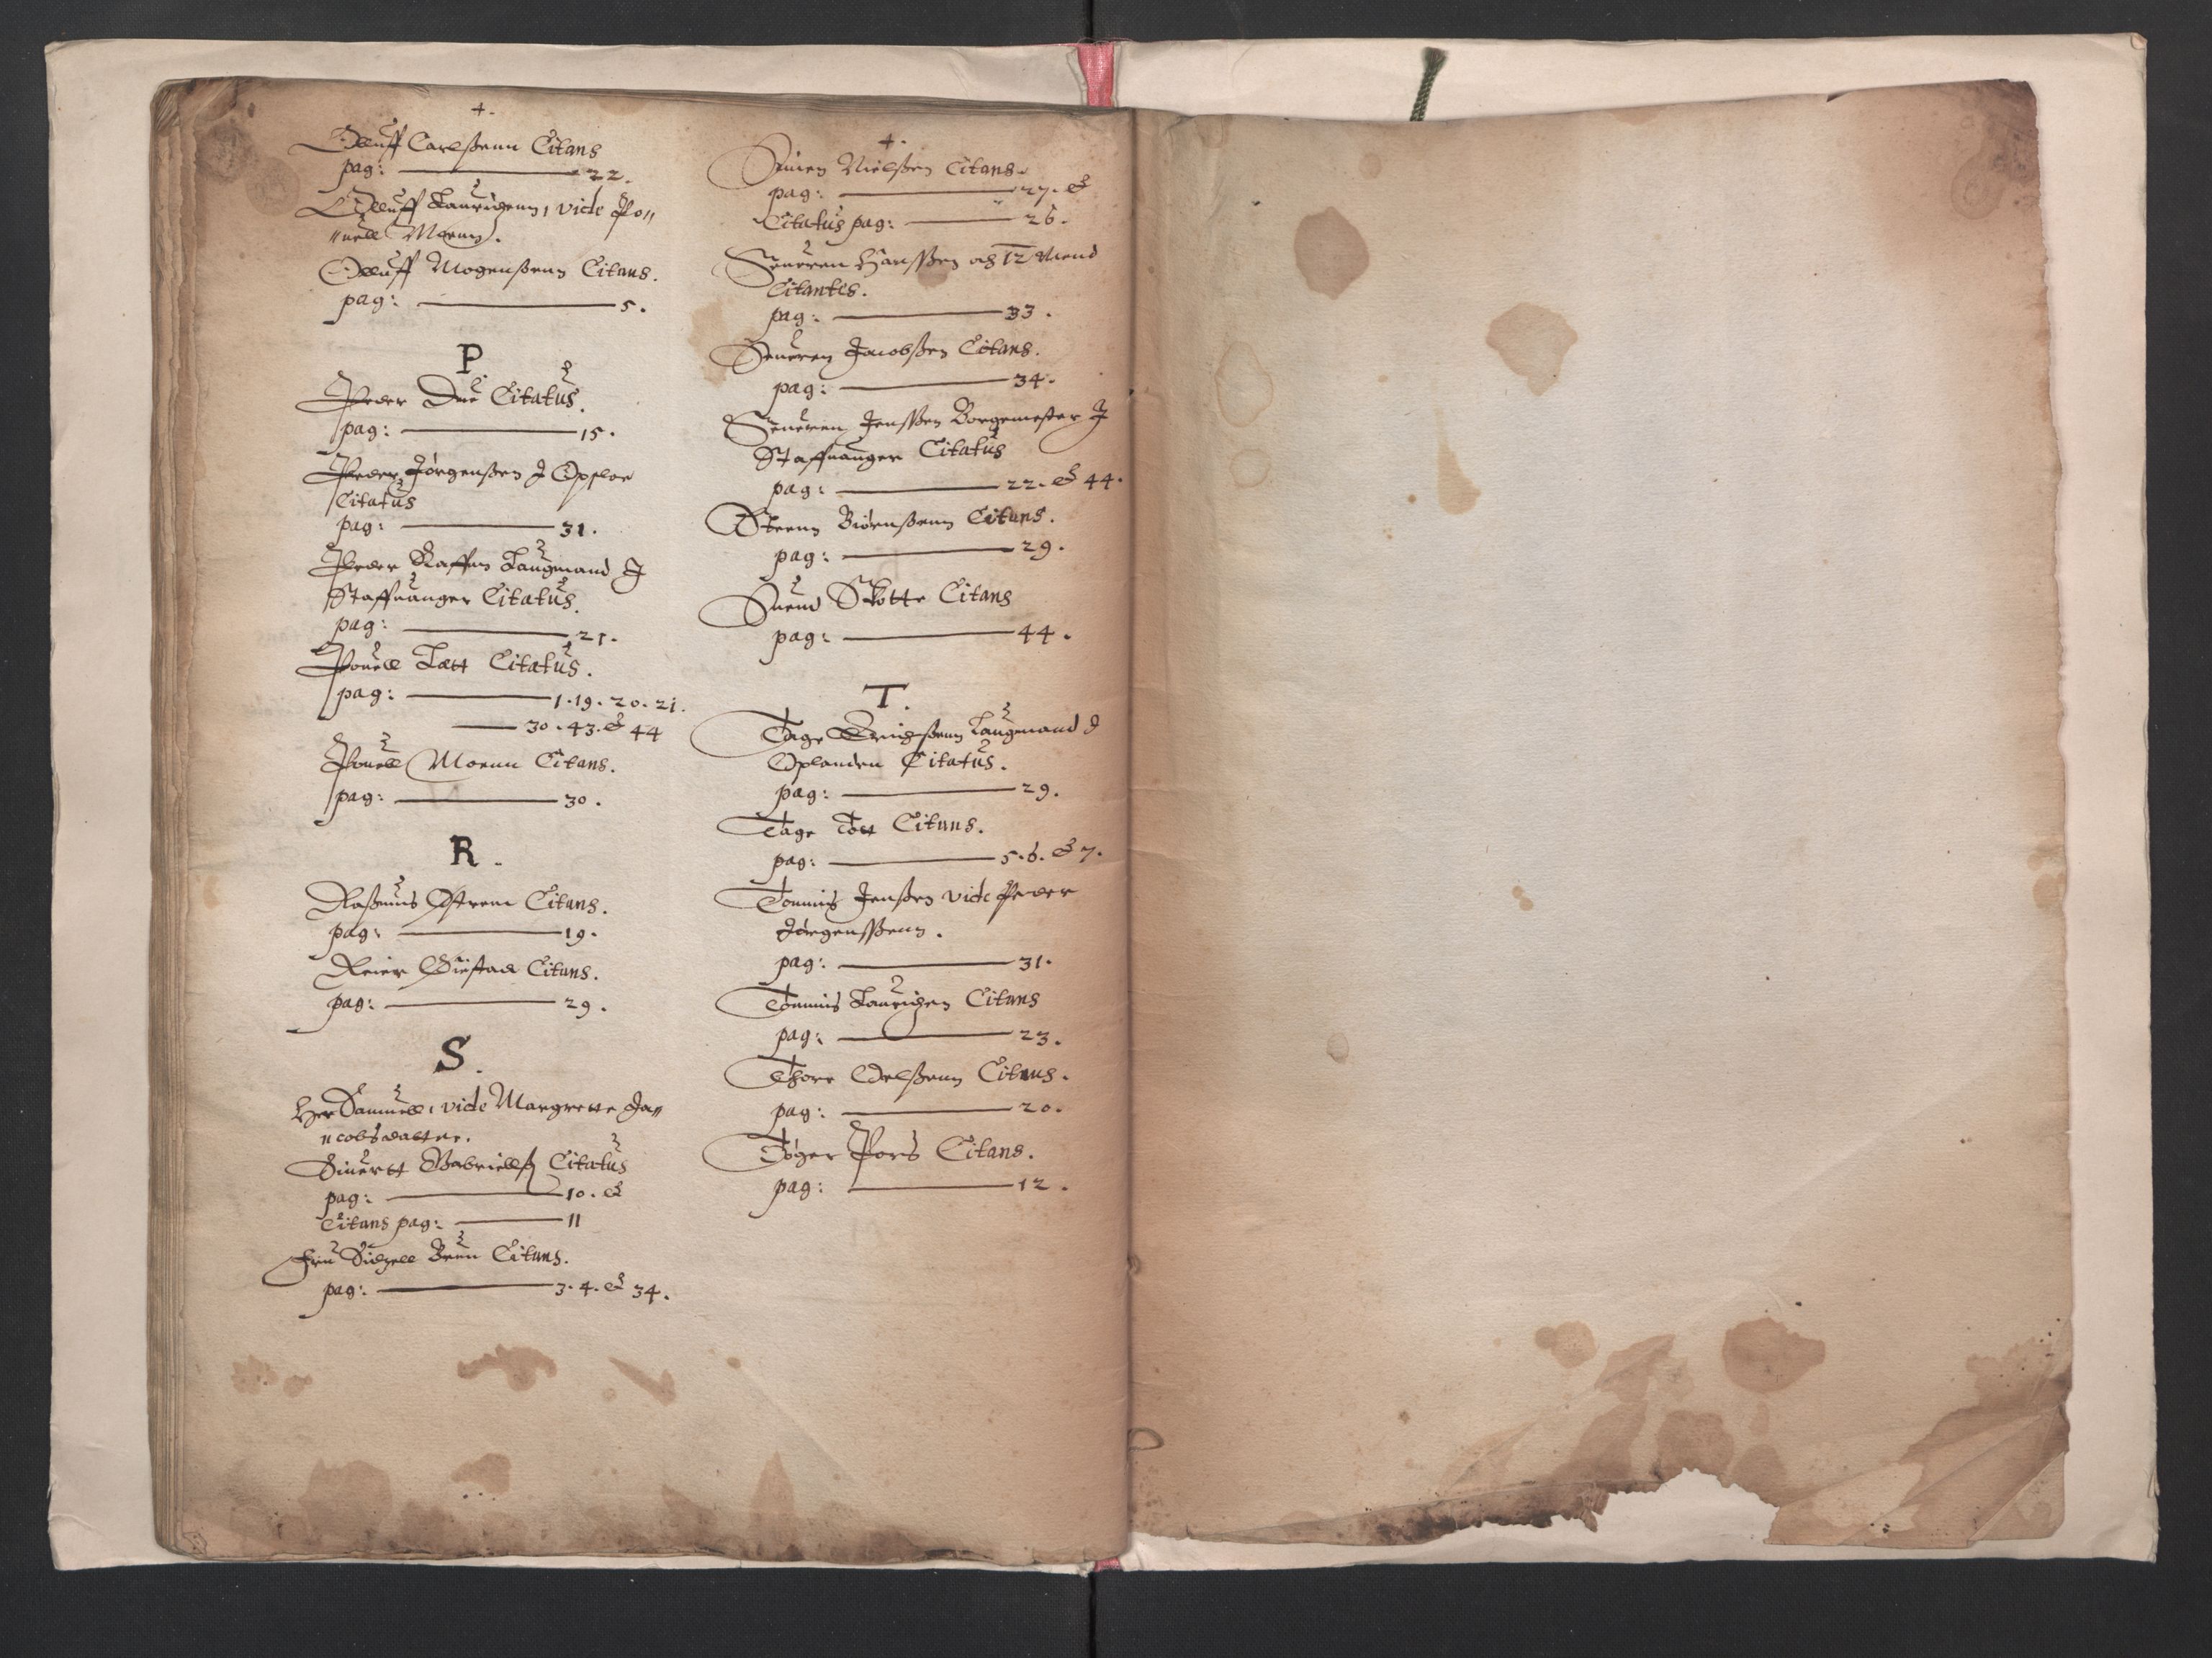 +.
Olluff Carlßenn Citans
pag: 22.
Olluff Lauridzenn, vide Po„
„uell Moenn.
Olluff Mogenßenn Citans.
pag: 5.
P
Peder Due Citatus.
pag: 15.
Peder Jørgenßen J Opsloe
Citatus
pag: 31.
Peder Kaffen Laugmand J
Staffuanger Citatus.
pag: 21.
Pouell Tætt Citatus.
pag: 1. 19. 20. 21.
30. 43. & 44
Pouell Moenn Citans.
pag: 30.
R.
Raßmus Citans.
pag: 19.
Reier Citans.
pag: 29.
S.
Her Samuell, vide Margrette Ja„
„cobsdatter.
Siuertt Gabriellß Citatus
pag: 10. &
Citans pag: 11
Fru Sidzell Citans.
pag: 3. 4. & 34.
+.
Simen Nielßen Citans.
pag: 27. &
Citatus pag: 26.
Seueren Hanßen och 12 Mend
Citantes.
pag: 33.
Seueren Jacobßen Citans.
pag: 34.
Seueren Jenßen Borgemester J
Staffuanger Citatus
pag: 22. & 44.
Steenn Biørnßenn Citans.
pag: 29.
Suend Skotte Citans
pag: 44.
T.
Tage Erichßenn Laugmand J
Oplanden Citatus.
pag: 29.
Tage Tott Citans.
pag: 5. 6. & 7.
Tønnis Jenßen vide Peder
Jørgenßenn.
pag: 31.
Tønnis Lauridzen Citans
pag: 23.
Thore Citans.
pag: 20.
Tøger Pors Citans.
pag: 12.